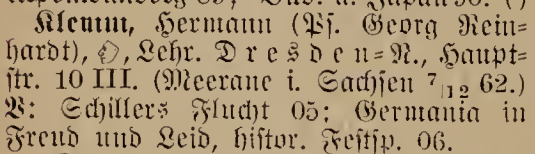 Klemm, Hermann (Ps. Georg Rein=
hardt), Lehr. Dresden=N., Haupt=
str. 10 III. (Meerane i. Sachsen 7/12 62.)
V: Schillers Flucht 05; Germania in
Freud und Leid, histor. Festsp. 06.